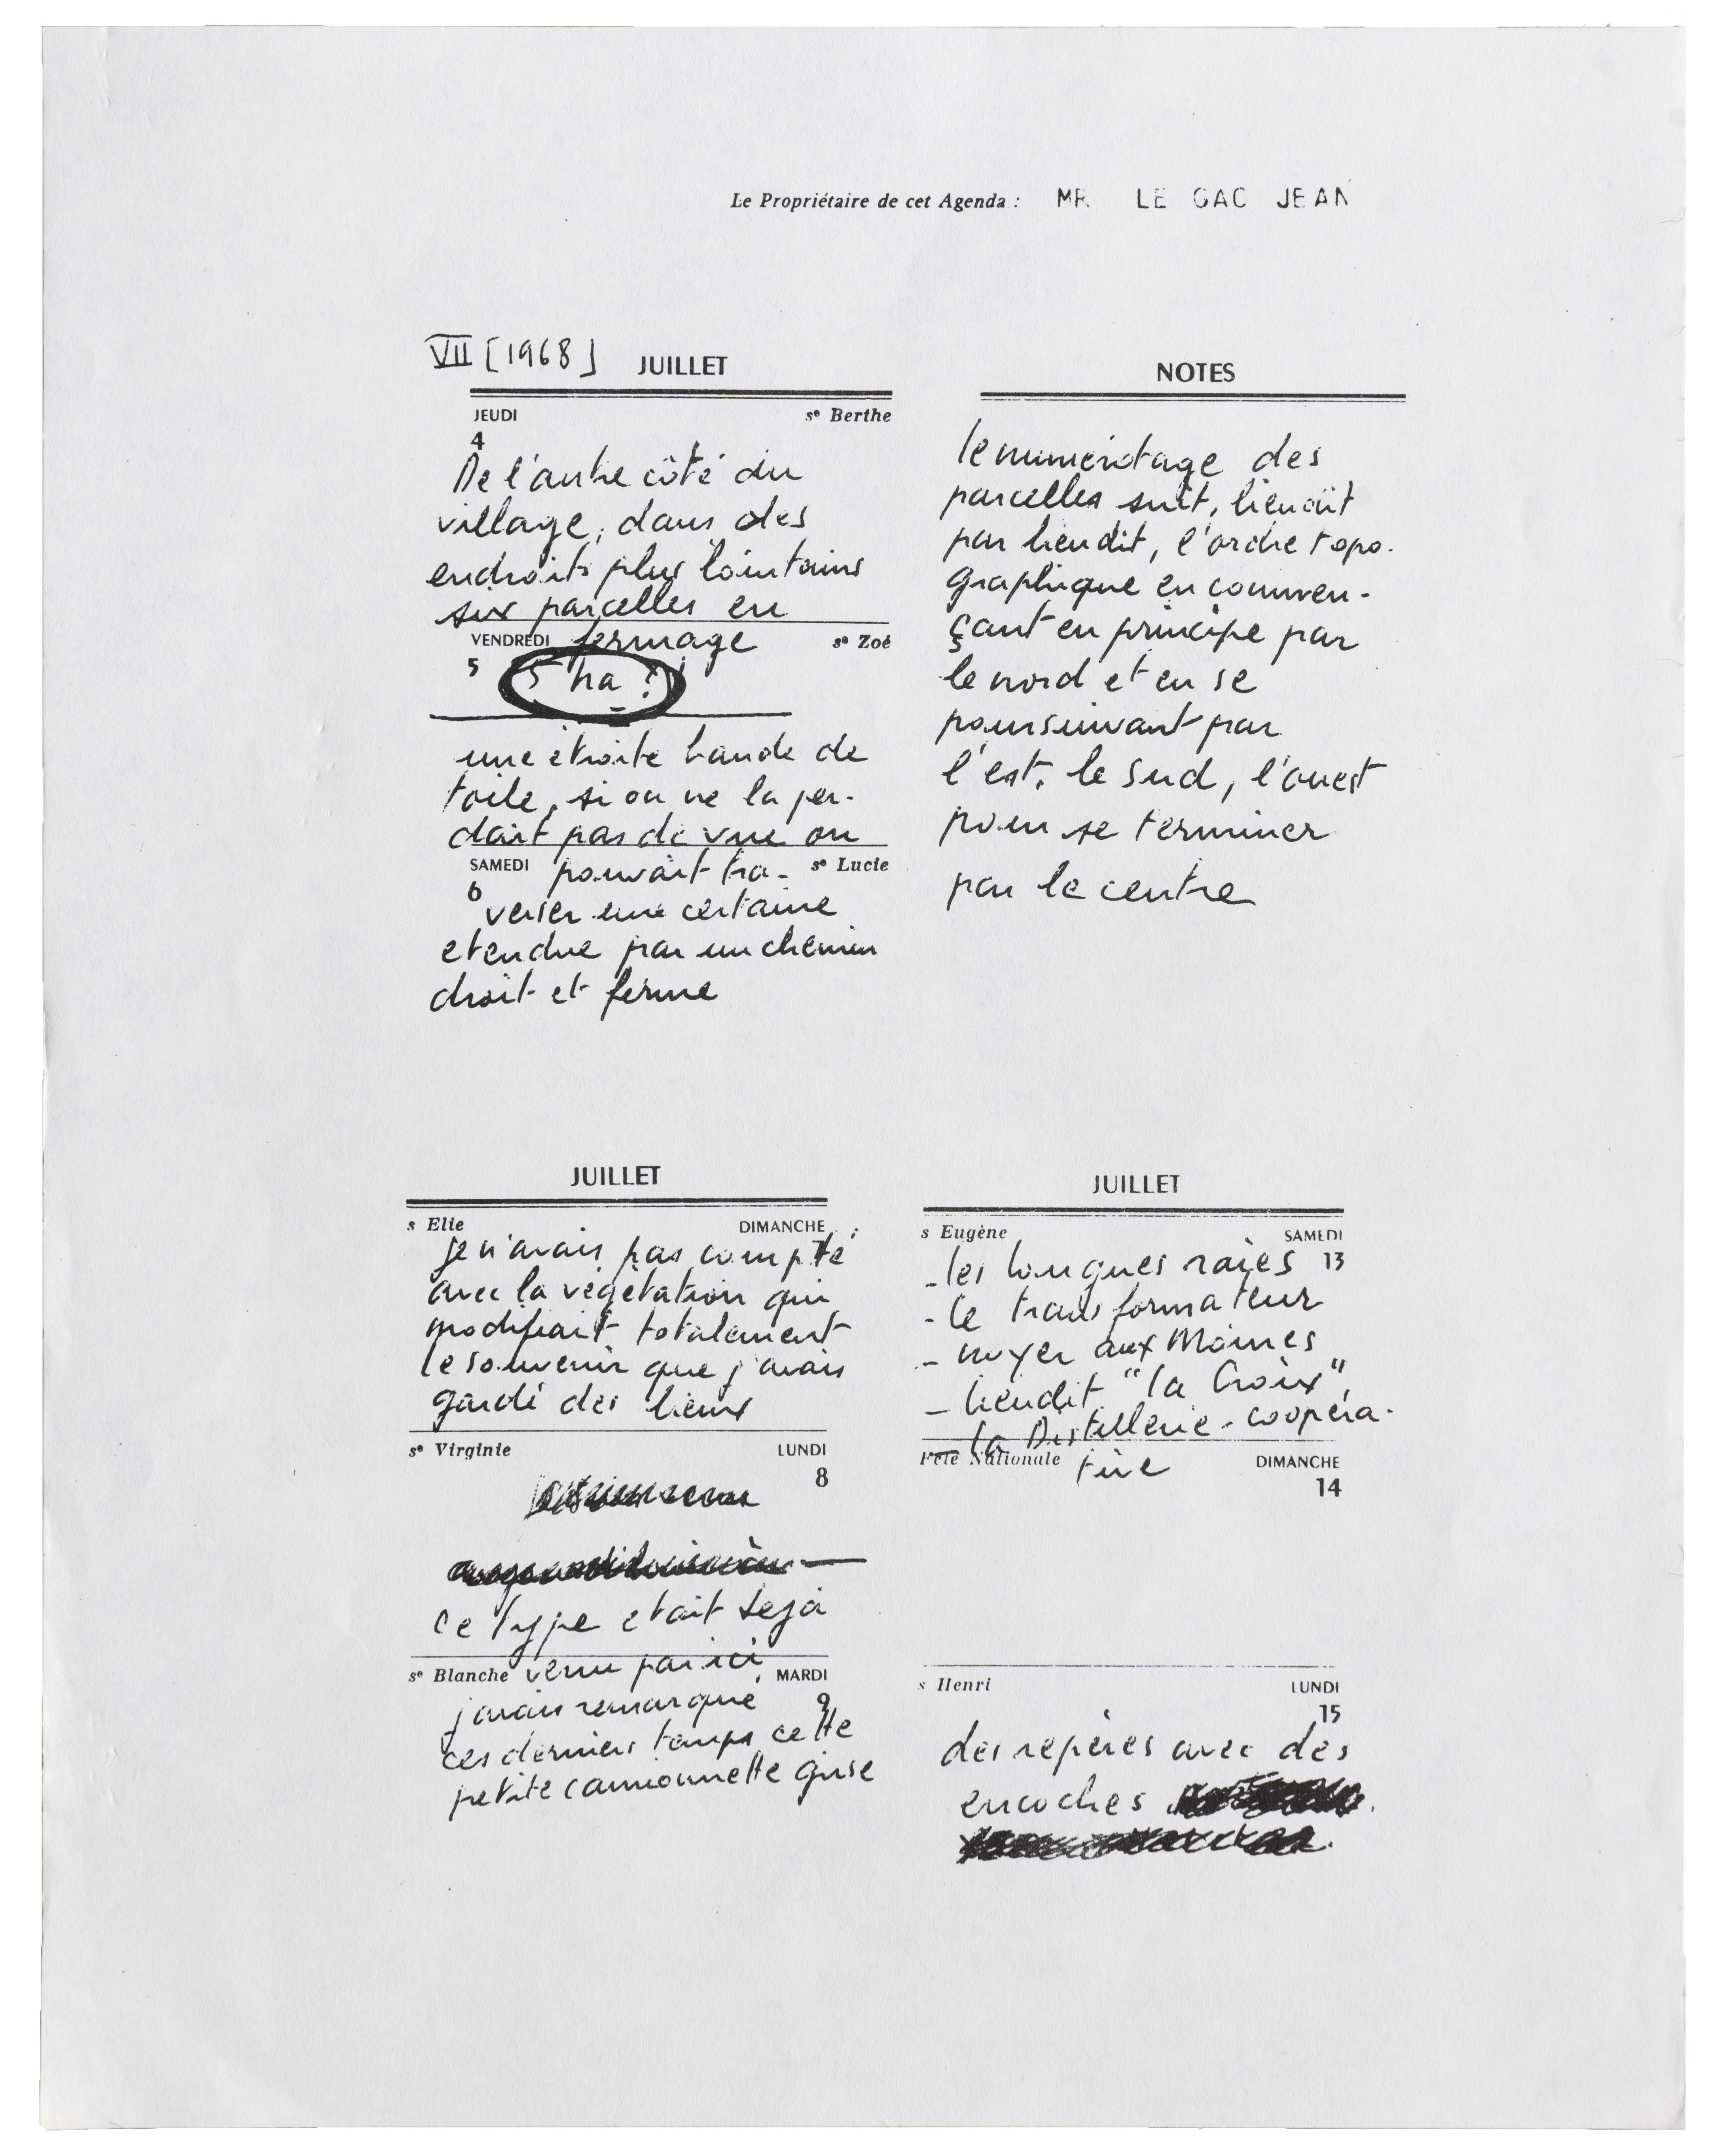 Le Propriétaire de cet Agenda : MR LE GAC JEAN
VII [1968] JUILLET
JEUDI sᵉ Berthe
4
De l'autre côté du
village, dans des
endroits plus lointains
six parcelles en
VENDREDI fermage sᵉ Zoé
5 5 ha ?
une étroite bande de
toile, si on ne la per-
dait pas de vue on
SAMEDI pouvait tra- sᵉ Lucie
6
verser une certaine
etendue par un chemin
droit et ferme
NOTES
le numérotage des
parcelles suit, lieudit
par lieudit, l'ordre topo-
graphique en commen-
çant en principe par
le nord et en se
poursuivant par
l'est, le sud, l'ouest
pour se terminer
par le centre
JUILLET
s Elie DIMANCHE
7
je n'avais pas compté
avec la végétation qui
modifiait totalement
le souvenir que j'avais
gardé des lieux
sᵉ Virginie LUNDI
8
ce type etait deja
sᵉ Blanche venu par ici, MARDI
j'avais remarqué 9
ces derniers temps cette
petite camionnette grise
JUILLET
s Eugène SAMEDI
- les longues raies 13
- le transformateur
- noyer aux Moines
- lieudit "la Croix",
- la Distillerie-coopéra-
Fête Nationale tive DIMANCHE
14
s Henri LUNDI
15
des repères avec des
encoches